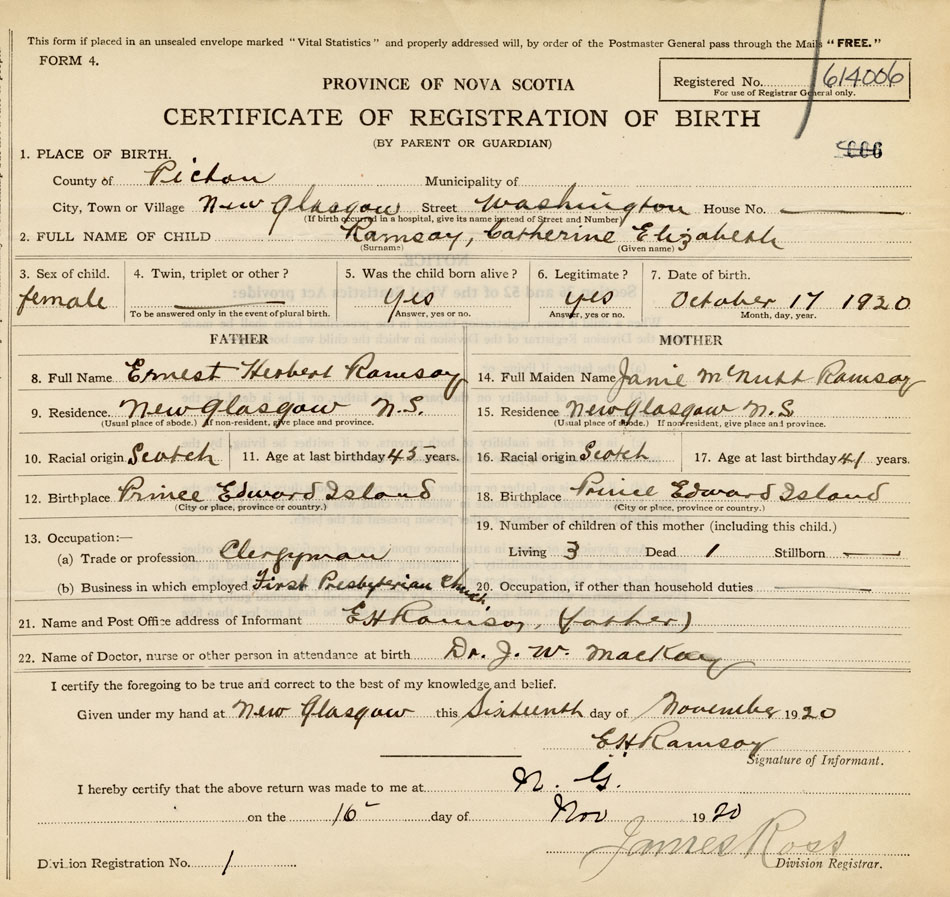 This form if placed in an unsealed envelope marked "Vital Statistics" and properly addressed will, by order of the Postmaster General pass through the Mails "FREE."
FORM 4.
PROVINCE OF NOVA SCOTIA
Registered No. 614006
For use of Registrar General only.
CERTIFICATE OF REGISTRATION OF BIRTH
(BY PARENT OR GUARDIAN)
1. PLACE OF BIRTH.
County of Pictou Municipality of
City, Town or Village New Glasgow Street Washington House No.
(If birth occurred in a hospital, give its name instead of Street and Number)
2. FULL NAME OF CHILD Ramsay, Catherine Elizabeth
(Surname) (Given name)
3. Sex of child. 4. Twin, triplet or other? 5. Was the child born alive? 6. Legitimate? 7. Date of birth.
female yes yes October 17 1920
To be answered only in the event of plural birth. Answer, yes or no. Answer, yes or no. Month, day, year.
FATHER MOTHER
8. Full Name Ernest Herbert Ramsay 14. Full Maiden Name Janie McNutt Ramsay
9. Residence New Glasgow N.S. 15. Residence New Glasgow N.S.
(Usual place of abode.) If non-resident, give place and province. (Usual place of abode.) If non-resident, give place and province.
10. Racial origin Scotch 11. Age at last birthday 45 years. 16. Racial origin Scotch 17. Age at last birthday 41 years.
12. Birthplace Prince Edward Island 18. Birthplace Prince Edward Island
(City or place, province or country.) (City or place, province or country.)
13. Occupation:— 19. Number of children of this mother (including this child.)
(a) Trade or profession Clergyman Living 3 Dead 1 Stillborn
(b) Business in which employed First Presbyterian Church. 20. Occupation, if other than household duties
21. Name and Post Office address of Informant E H Ramsay, (father)
22. Name of Doctor, nurse or other person in attendance at birth Dr. J. W. MacKay
I certify the foregoing to be true and correct to the best of my knowledge and belief.
Given under my hand at New Glasgow this Sixteenth day of November 1920
E H Ramsay
Signature of Informant.
I hereby certify that the above return was made to me at N. G.
on the 16 day of Nov 1920
James Ross
Division Registrar.
Division Registration No. 1